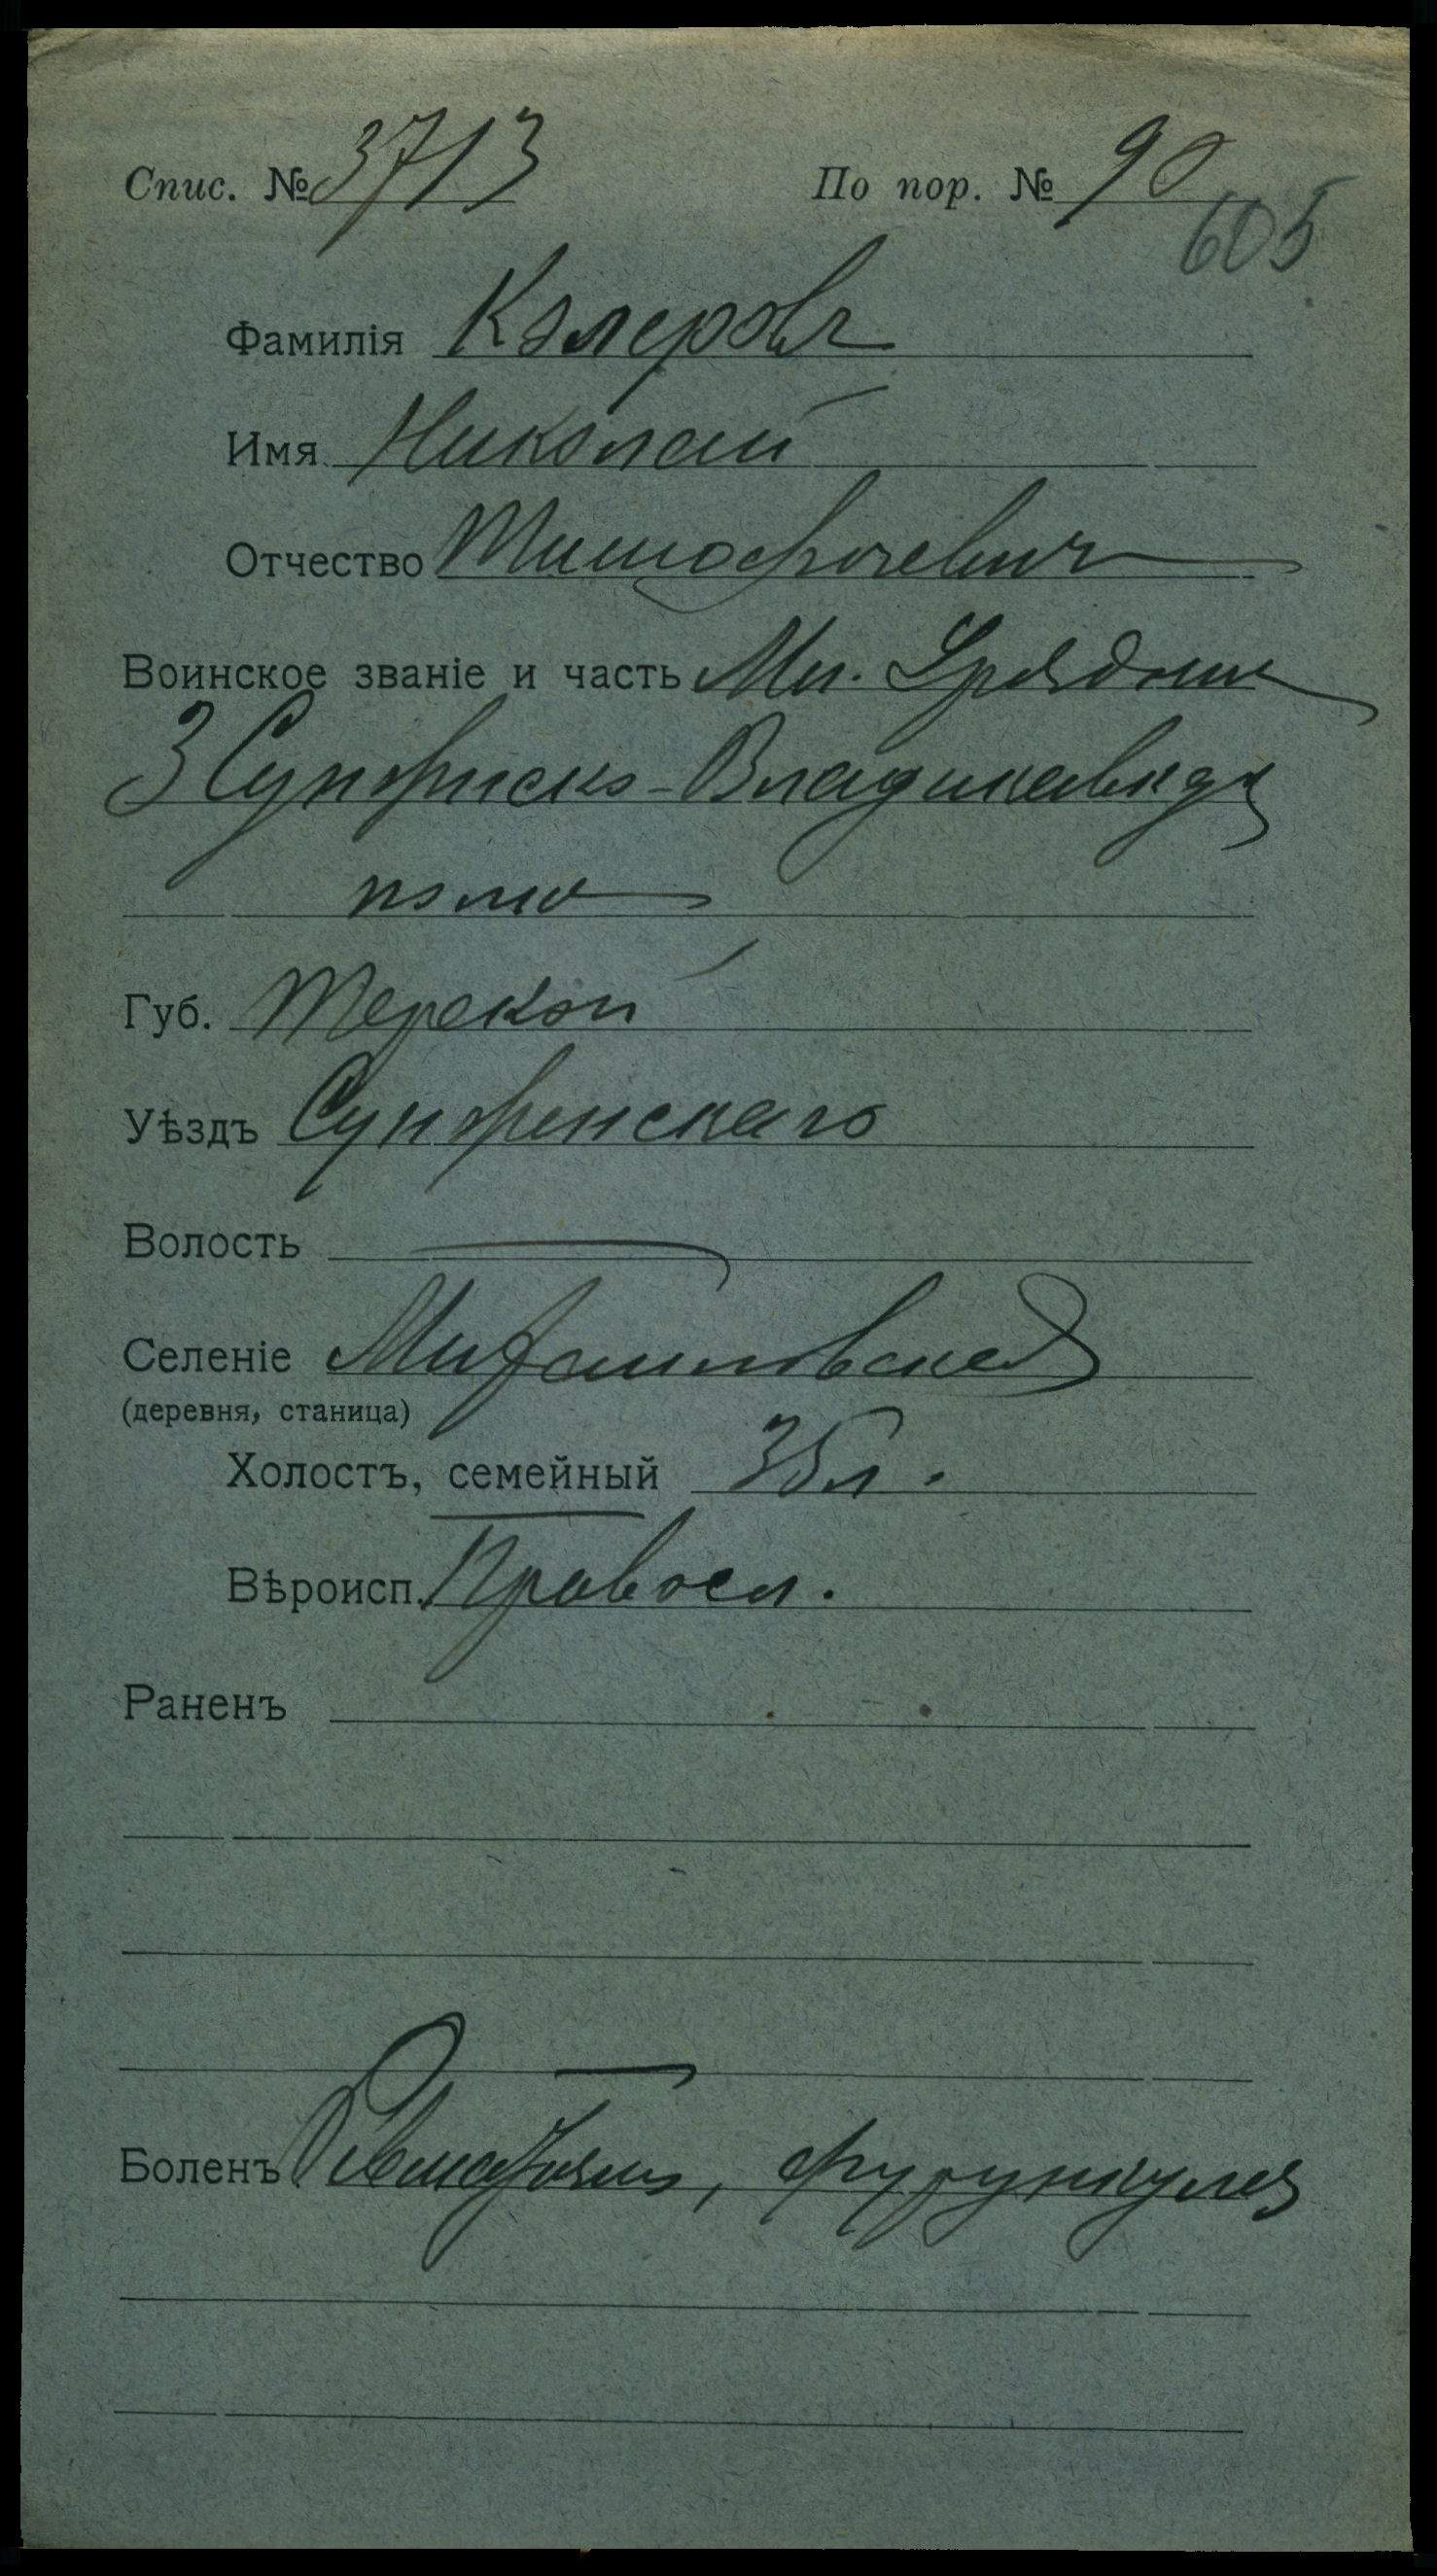 Спис. № 3713 По пор. № 90
605
Фамилія Колеровъ
Имя Николай
Отчество Тимофеевич
Воинское званіе и часть Мл. Урядник
3 Сунженско-Владикавказ
полка
Губ. Терской
Уѣздъ Сунженскаго
Волость
Селеніе Михайловская
(деревня, станица)
Холостъ, семейный 35 л.
Вѣроисп. Правосл.
Раненъ
Боленъ Ревматизм, фурункулез